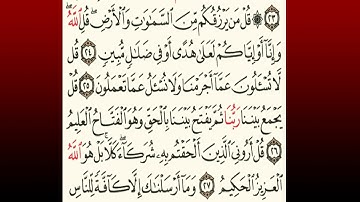 ﴿٢٣﴾ ۞ قُلْ مَن يَرْزُقُكُم مِّنَ السَّمَٰوَٰتِ وَالْأَرْضِ ۖ قُلِ اللَّهُ ۖ
وَإِنَّا أَوْ إِيَّاكُمْ لَعَلَىٰ هُدًى أَوْ فِي ضَلَٰلٍ مُّبِينٍ ﴿٢٤﴾ قُل
لَّا تُسْـَٔلُونَ عَمَّا أَجْرَمْنَا وَلَا نُسْـَٔلُ عَمَّا تَعْمَلُونَ ﴿٢٥﴾ قُلْ
يَجْمَعُ بَيْنَنَا رَبُّنَا ثُمَّ يَفْتَحُ بَيْنَنَا بِالْحَقِّ وَهُوَ الْفَتَّاحُ الْعَلِيمُ
﴿٢٦﴾ قُلْ أَرُونِيَ الَّذِينَ أَلْحَقْتُم بِهِ شُرَكَاءَ ۖ كَلَّا ۚ بَلْ هُوَ اللَّهُ
الْعَزِيزُ الْحَكِيمُ ﴿٢٧﴾ وَمَا أَرْسَلْنَٰكَ إِلَّا كَافَّةً لِّلنَّاسِ